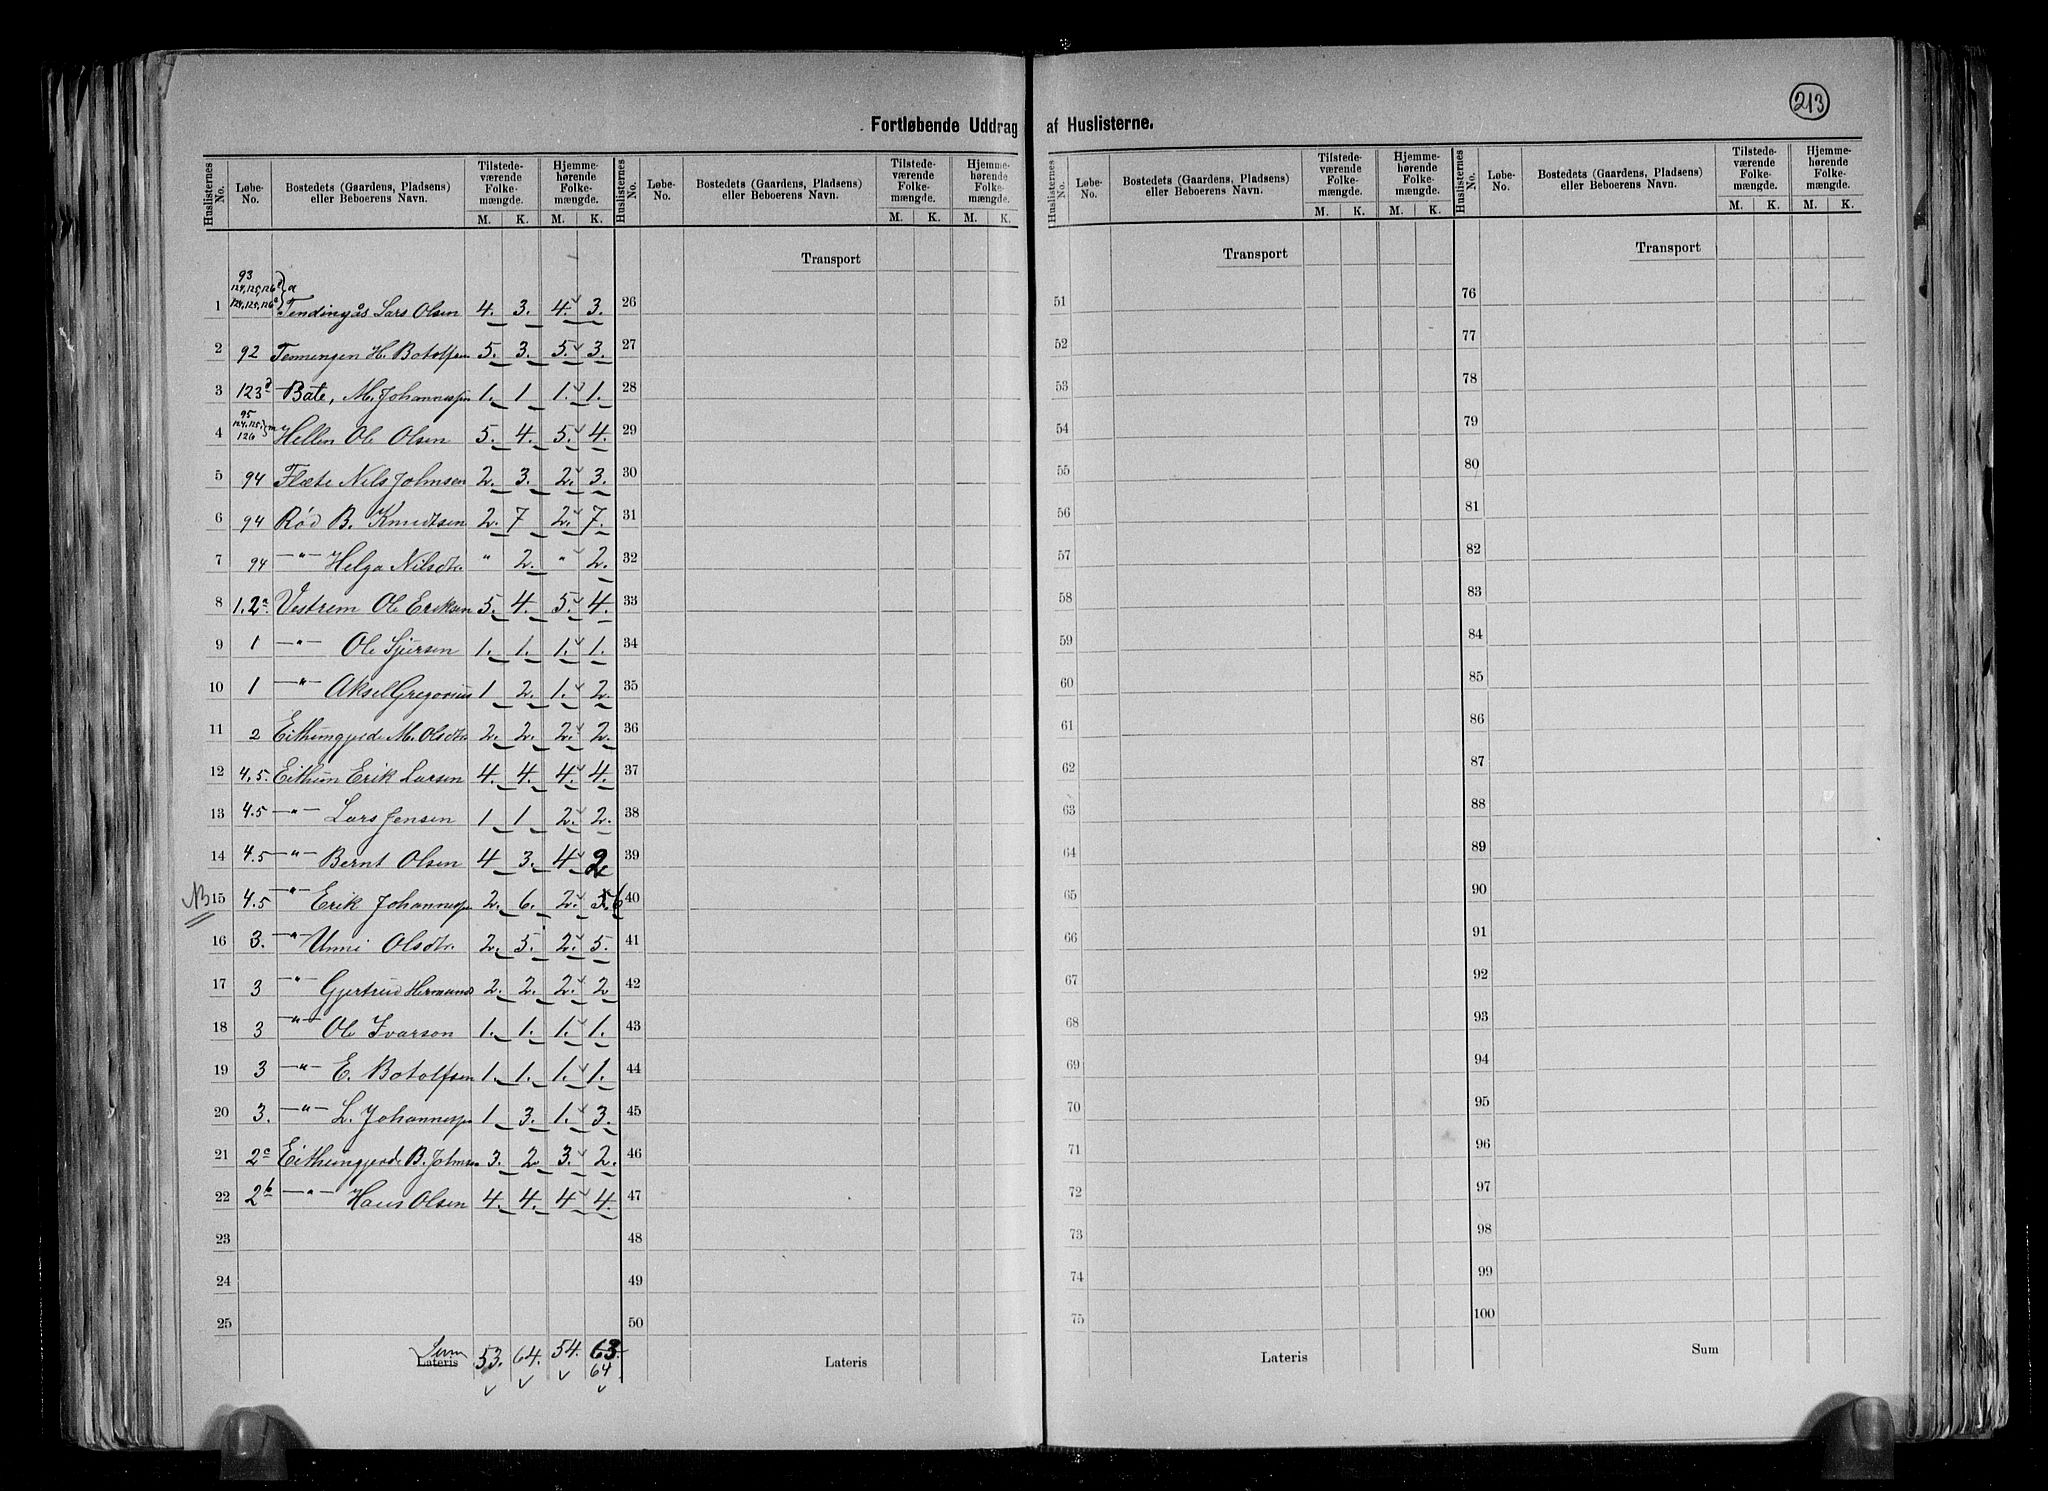 213
Fortløbende Uddrag af Huslisterne.
Huslisternes No. Løbe-No. Bostedets (Gaardens, Pladsens) eller Beboerens Navn. Tilstedeværende Folkemængde. M. K. Hjemmehørende Folkemængde. M. K.
Huslisternes No. Løbe-No. Bostedets (Gaardens, Pladsens) eller Beboerens Navn. Tilstedeværende Folkemængde. M. K. Hjemmehørende Folkemængde. M. K.
Huslisternes No. Løbe-No. Bostedets (Gaardens, Pladsens) eller Beboerens Navn. Tilstedeværende Folkemængde. M. K. Hjemmehørende Folkemængde. M. K.
Huslisternes No. Løbe-No. Bostedets (Gaardens, Pladsens) eller Beboerens Navn. Tilstedeværende Folkemængde. M. K. Hjemmehørende Folkemængde. M. K.
Transport Transport Transport
93
124, 125, 126
1 124, 125, 126 Tendingås Lars Olsen 4. 3. 4. 3. 26 51 76
2 92 Tenningen H. Botolfsen 5. 3. 5. 3. 27 52 77
3 123 Bate, M. Johannessen 1. 1 1. 1. 28 53 78
95
124, 125,
4 126 Hellen Ole Olsen 5. 4. 5. 4. 29 54 79
5 94 Flæte Nils Johnsen 2. 3. 2. 3. 30 55 80
6 94 Rød B. Knudtsen 2. 7 2. 7. 31 56 81
7 94 —"— Helga Nilsdtr. " 2. " 2. 32 57 82
8 1. 2a. Vestrem Ole Eriksen 5. 4. 5. 4. 33 58 83
9 1 —"— Ole Sjursen 1. 1. 1. 1. 34 59 84
10 1 —"— Aksel Gregorius 1 2. 1. 2. 35 60 85
11 2 Eithungjerde M. Olsdtr 2. 2. 2. 2. 36 61 86
12 4. 5. Eithun Erik Larsen 4. 4. 4. 4. 37 62 87
13 4.5 —"— Lars Jensen 1 1 2. 2. 38 63 88
14 4.5 —"— Bernt Olsen 4 3. 4 2 39 64 89
NB 15 4.5 —"— Erik Johannessen 2. 6. 2. 5. 6 40 65 90
16 3. —"— Unni Olsdtr. 2. 5. 2. 5. 41 66 91
17 3 —"— Gjertrud Hermunds 2. 2. 2. 2 42 67 92
18 3 —"— Ole Ivarson 1. 1. 1. 1. 43 68 93
19 3 —"— E. Botolfsen 1. 1. 1. 1. 44 69 94
20 3. —"— L. Johannessen 1 3. 1. 3. 45 70 95
21 2a Eithungjerde B. Johnsen 3. 2 3. 2. 46 71 96
22 2b —"— Hans Olsen 4. 4. 4 4. 47 72 97
23 48 73 98
24 49 74 99
25 50 75 100
Sum
Lateris 53. 64. 54. 63. Lateris Lateris Sum
64